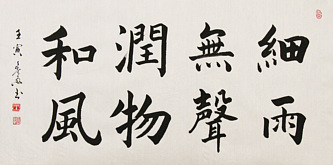 細雨
無聲
潤物
和風
壬寅